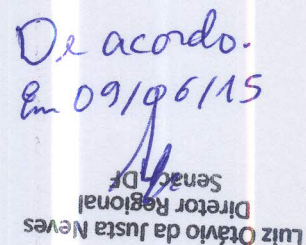 De acordo.
Em 09/06/15
Luiz Otávio da Justa Neves
Diretor Regional
Senac-DF